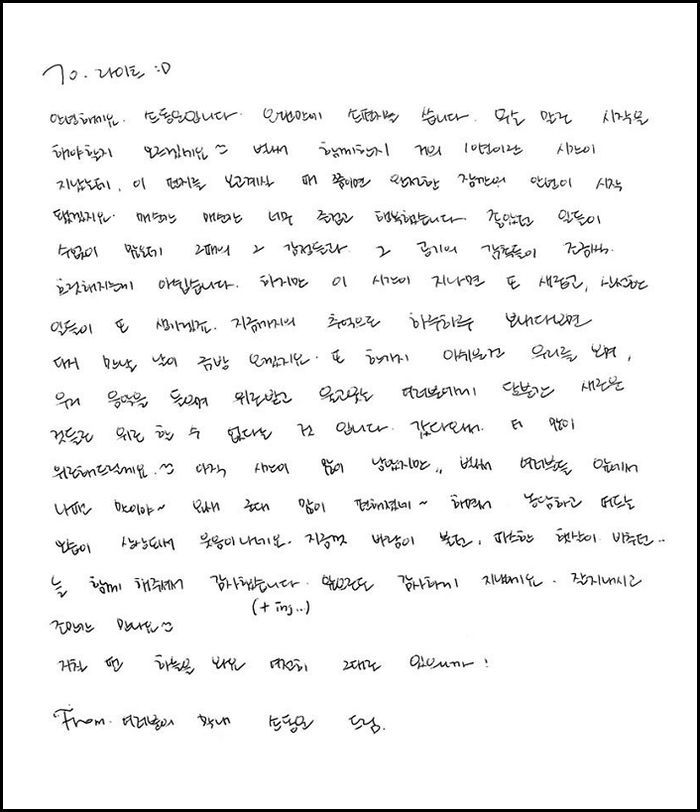 To. 라이트 :D
안녕하세요. 손동운입니다. 오랜만에 손편지를 씁니다. 무슨 말로 시작을
해야할지 모르겠네요 벌써 함께한지 거의 10년이란 시간이
지났는데, 이 편지를 보고계실 때 쯤이면 완전한 잠깐의 안녕이 시작
됐겠지요. 매순간 매순간 너무 즐겁고 행복했습니다. 재밌었던 일들이
수없이 많은데 그때의 그 감정들과 그 공기의 감촉들이 조금씩
흐릿해지는게 아쉽습니다. 하지만 이 시간이 지나면 또 새롭고, 신선한
일들이 또 생기겠죠. 지금까지의 추억으로 하루하루 보내다보면
다시 만날 날이 금방 오겠지요. 또 한가지 아쉬운건 우리를 보며,
우리 음악을 들으며 위로받고 울고웃는 여러분에게 당분간 새로운
것들로 위로 할 수 없다는 것 입니다. 갔다와서 더 많이
위로해드릴게요. 아직 시간이 많이 남았지만,, 벌써 여러분들 앞에서
나때는 말이야~ 요새 군대 많이 편해졌네~ 하면서 농담하고 떠드는
모습이 상상돼서 웃음이나네요. 지금껏 바람이 불던, 따스한 햇살이 비추던..
늘 함께 해주셔서 감사했습니다. 앞으로도 감사하게 지낼게요. 잘지내시고
(+ ing..)
조만간 만나요
지칠 땐 하늘을 봐요 여전히 그대로 있으니까!
From. 여러분의 막내 손동운 드림.